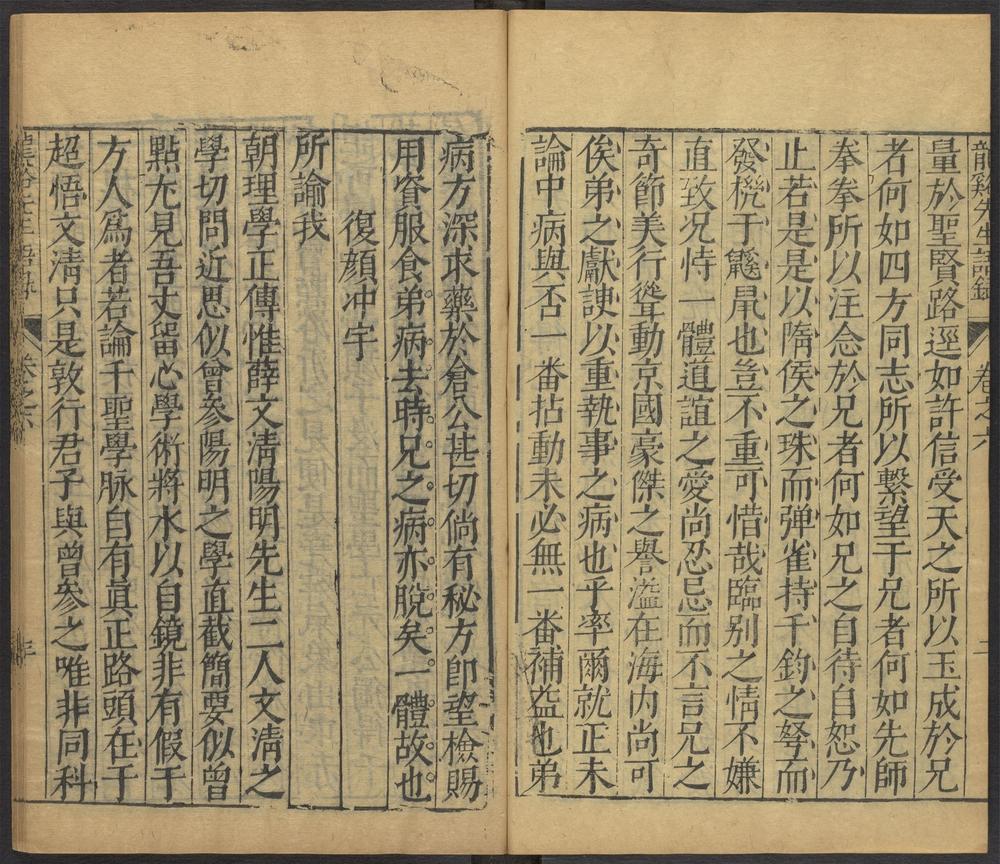 龍谿先生語錄 卷之六
量於聖賢路逕如許信受天之所以玉成於兄
者何如四方同志所以繫望于兄者何如先師
拳拳所以注念於兄者何如兄之自待自恕乃
止若是是以隋侯之珠而弹雀持千鈞之弩而
發機于鼷鼠也豈不重可惜哉臨別之情不嫌
直致况恃一體道誼之愛尚忍忌而不言兄之
奇節美行聳動京國豪傑之譽溢在海内尚可
俟弟之獻諛以重執事之病也乎率爾就正未
論中病與否一番拈動未必無一番補益也弟
病方深求藥於倉公甚切倘有秘方卽望檢賜
用資服食弟病去時兄之病亦脫矣一體故也
復顔冲宇
所諭我
朝理學正傳惟薛文淸陽明先生二人文淸之
學切問近思似曾參陽明之學直截簡要似曾
點尢見吾丈留心學術將水以自鏡非有假于
方人爲者若論千聖學脉自有眞正路頭在于
超悟文淸只是敦行君子與曾參之唯非同科
卷之六